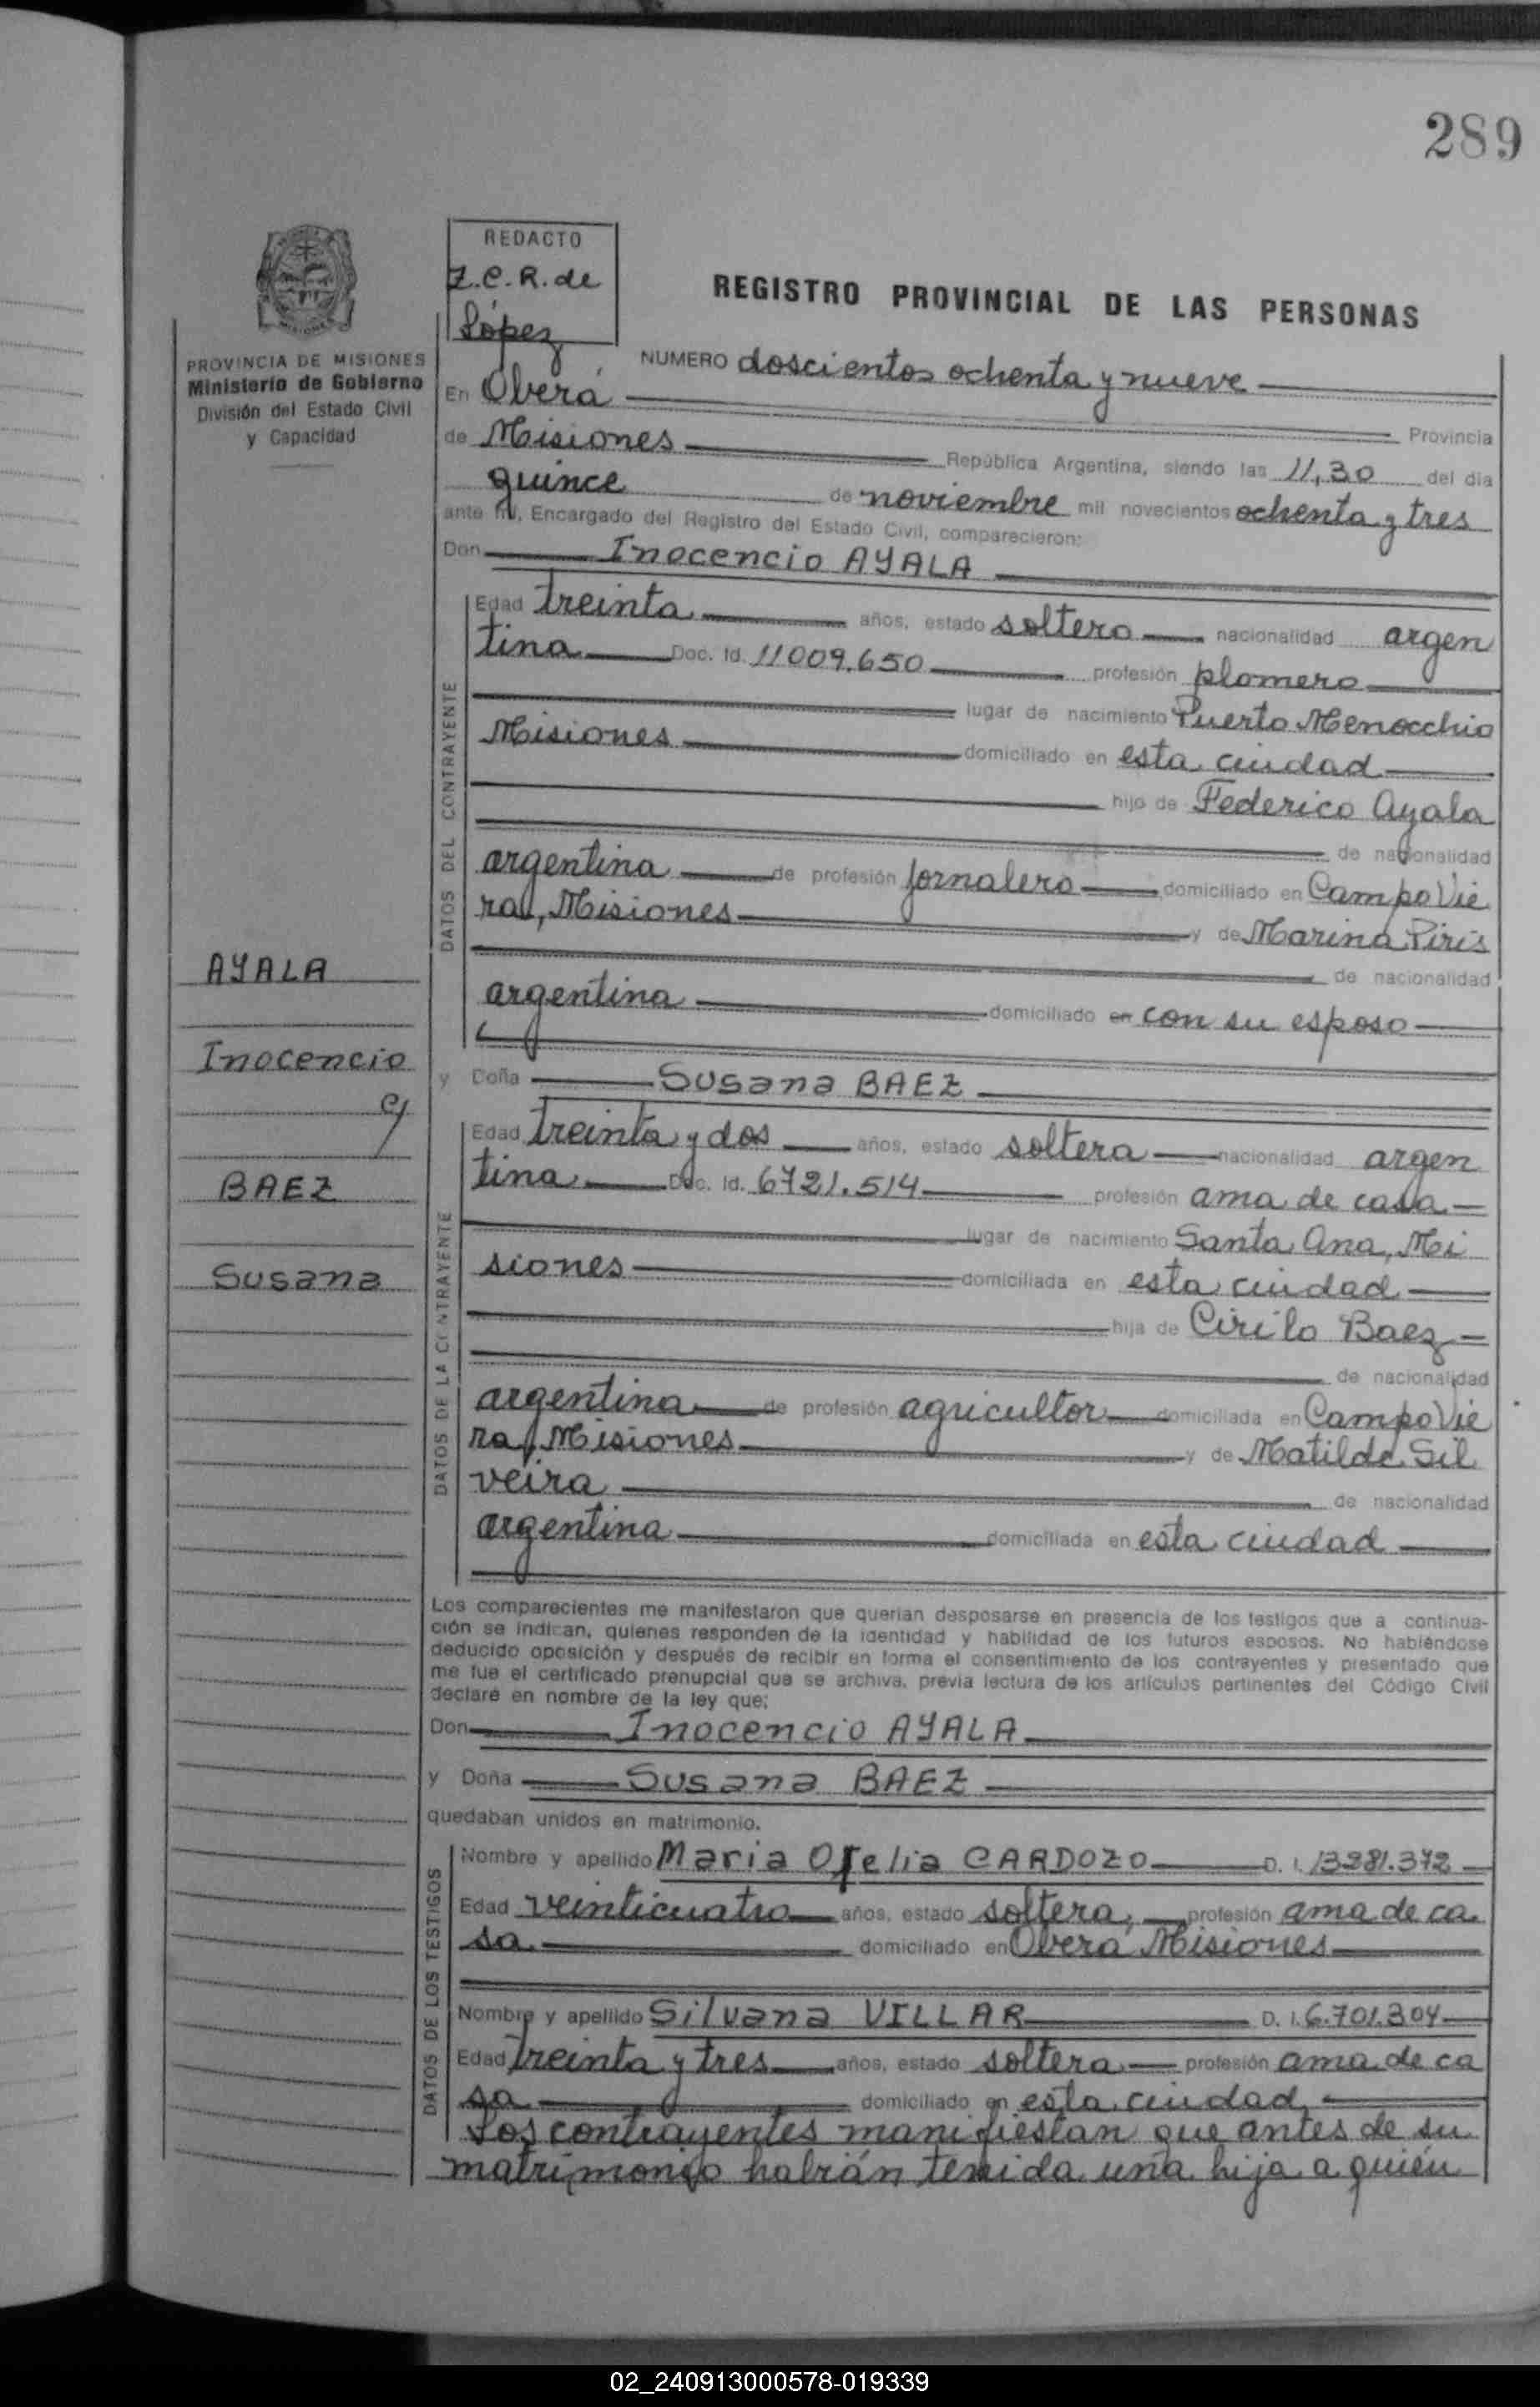 289
REDACTO
Z.C.R. de
López
REGISTRO PROVINCIAL DE LAS PERSONAS
MISIONES
PROVINCIA DE MISIONES
Ministerio de Gobierno
División del Estado Civil
y Capacidad
NUMERO doscientos ochenta y nueve
En Oberá Provincia
de Misiones República Argentina, siendo las 11,30 del día
quince de noviembre mil novecientos ochenta y tres
ante mí, Encargado del Registro del Estado Civil, comparecieron:
Don Inocencio AYALA
DATOS DEL CONTRAYENTE
Edad treinta años, estado soltero nacionalidad argen
tina Doc. Id. 11009.650 profesión plomero
lugar de nacimiento Puerto Menocchio
Misiones domiciliado en esta ciudad
hijo de Federico Ayala
de nacionalidad
argentina de profesión jornalero domiciliado en Campo Vie
ra, Misiones y de Marina Piris
de nacionalidad
argentina domiciliado en con su esposo
AYALA
Inocencio
c/
BAEZ
Susana
y Doña Susana BAEZ
DATOS DE LA CONTRAYENTE
Edad treinta y dos años, estado soltera nacionalidad argen
tina Doc. Id. 6721.514 profesión ama de casa
lugar de nacimiento Santa Ana, Mi
siones domiciliada en esta ciudad
hija de Cirilo Baez
de nacionalidad
argentina de profesión agricultor domiciliada en Campo Vie
ra, Misiones y de Matilde Sil
veira de nacionalidad
argentina domiciliada en esta ciudad
Los comparecientes me manifestaron que querían desposarse en presencia de los testigos que a continua-
ción se indican, quienes responden de la identidad y habilidad de los futuros esposos. No habiéndose
deducido oposición y después de recibir en forma el consentimiento de los contrayentes y presentado que
me fue el certificado prenupcial que se archiva, previa lectura de los artículos pertinentes del Código Civil
declaré en nombre de la ley que:
Don Inocencio AYALA
y Doña Susana BAEZ
quedaban unidos en matrimonio.
DATOS DE LOS TESTIGOS
Nombre y apellido Maria Ofelia CARDOZO D. I. 13281.372
Edad veinticuatro años, estado soltera, profesión ama de ca
sa domiciliado en Oberá Misiones
Nombre y apellido Silvana VILLAR D. I. 6.701.304
Edad treinta y tres años, estado soltera profesión ama de ca
sa domiciliado en esta ciudad
Los contrayentes manifiestan que antes de su
matrimonio habián tenida una hija a quién
02_240913000578-019339